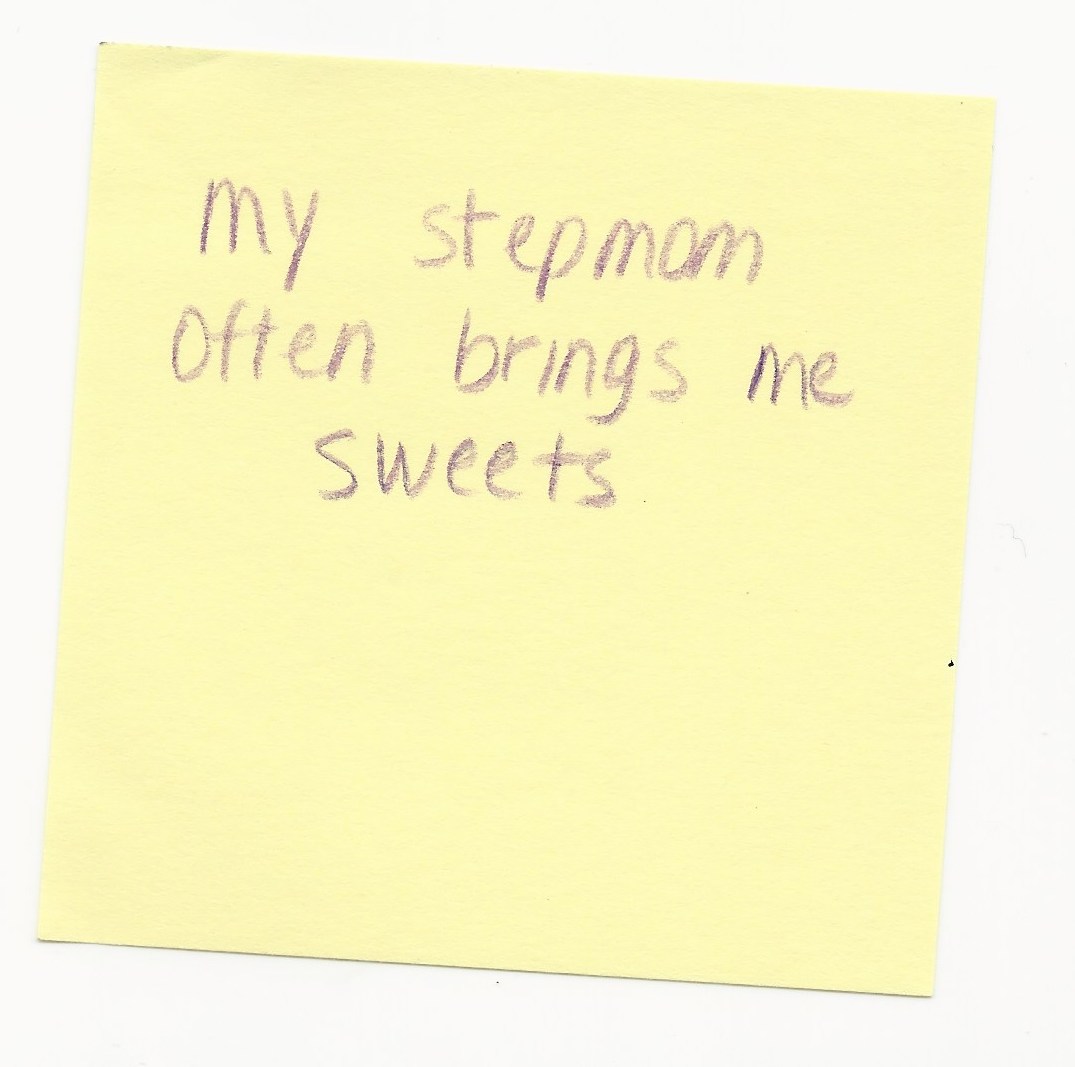 my stepmom
often brings me
sweets